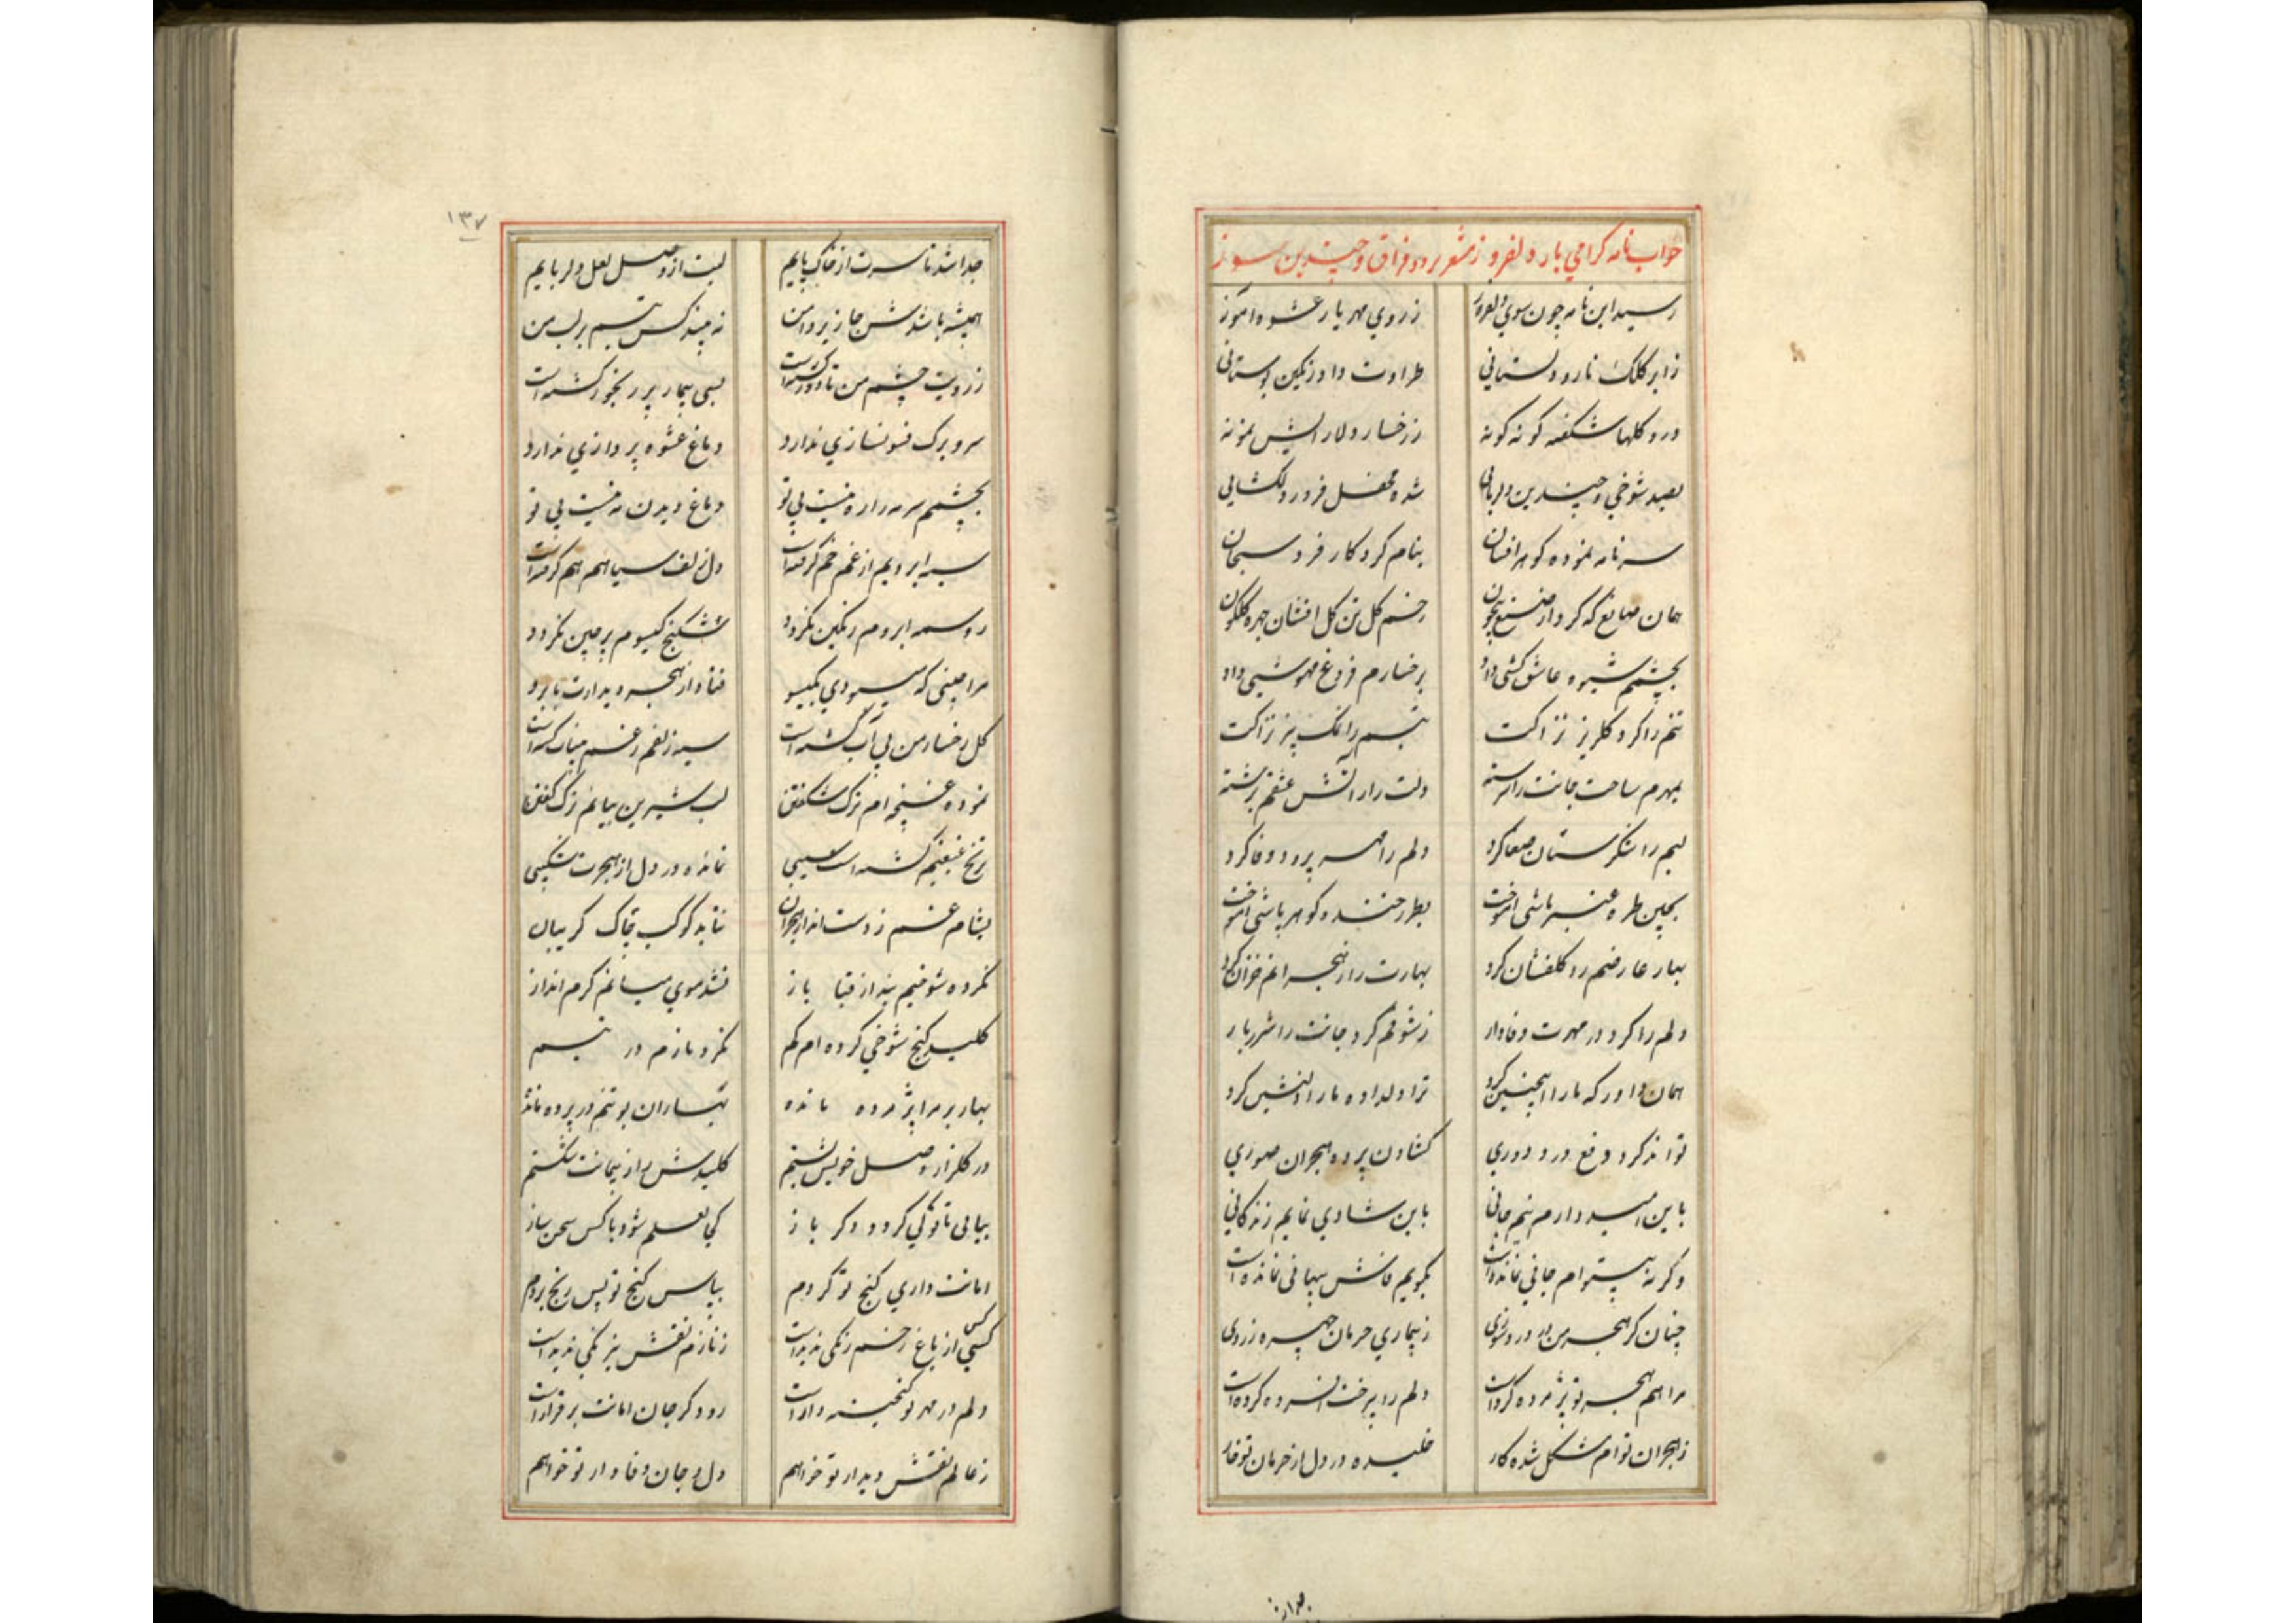 جواب نامه کرامي يار دلفروز مشعر بر درد فراق و چندين سوز
رسيد اين نامه چون سوي دلفروز زروي مهر يار عشوه اموز
زابر کلک نارو دلستاني طراوت داد رنکين بوستاني
درو کلها شکفته کونه کونه ز رخسار دلارايش نمونه
بصد شوخي و چندين دلربائي شده محفل فروز دلکشايي
سر نامه نموده کوهر افشان بنام کردکار فرد سبحان
همان صانع که کرد از صنع بيچون رخم کل تن کل افشان چهره کلکون
بچشمم شيوه عاشق کشي داد برخسارم فروغ مهوشي داد
تنم را کرد کلريز نزاکت تبسم را نمک بيز نزاکت
بمهرم ساحت جانت سرشته دلت را ز اتش عشقم برشته
لبم را شکرستان صفا کرد دلم را مهر پرورد وفا کرد
بچين طره عنبر پاشي اموخت بطرز خنده کوهر پاشي اموخت
بهار عارضم رو کلفشان کرد بهارت را ز هجرانم خزان کرد
دلم را کرد در مهرت وفادار زشوقم کرد جانت را شرر بار
همان داور که ما را اينچنين کرد ترا دلداده ما را دلنشين کرد
تواند کرد دفع درد دوري کشادن پرده هجران صوري
باين اميد دارم نيم جاني باين شادي نمايم زندکاني
وکرنه بيتوام جاني نمانده است بکويم فاش پنهاني نمانده است
چنان کز هجر من در درد و سوزي زبيماري حرمان چهره زردي
مرا هم هجر تو پژمرده کرده است دلم را بيرخت افسرده کرده است
زهجران توام مشکل شده کار خليده در دل از حرمان تو خار
بهار
١٣٧
جدا شد تا سرت از خاک پايم لبت از وصل لعل دلربايم
هميشه باشدش جا زير دامن نه بيند کس تبسم بر لب من
زرويت چشم من تا دور کشته است بسي بيمار پر رنجور کشته است
سر و برک فسونسازي ندارد دماغ عشوه پردازي ندارد
بچشمم سرمه را ره نيست بي تو دماغ ديدن مه نيست بي تو
سيه ابرويم از غم خم کرفته است دل زلف سياهم هم کرفته است
ز وسمه ابروم رنکين نکردد شکنج کيسوم پر چين نکردد
مرا چيني که ميبودي بکيسو فتاد از هجر ديدارت بابرو
کل رخسار من بي آب کشته است سيه زلفم ز غم بيتاب کشته است
نموده غنچه ام ترک شکفتن لب شيرين بيانم ترک کفتن
ترنج غبغبم کشته است سيبي نمانده در دل از هجرت شکيبي
بشام غم زدست انداز هجران نتابد کوکب چاک کريبان
نکرده شوخيم بند از قبا باز نشد موي ميانم کرم انداز
کليد کنج شوخي کرده ام کم نکرد نازم در تبسم
بهار بر مرا پژمرده مانده بهاران بو تنم در پرده مانده
در کلزار وصل خويش بستم کليدش را ز پيمانت شکستم
بيائي تا توکي کردد دکر باز کي لعلم شود با کس سخن ساز
امانت داري کنج تو کردم بپاس کنج تو بس رنج بردم
کسي از باغ رخم رنکي نديده است زنازم نقش نيرنکي نديده است
دلم در مهر تو کنجينه دار است رود کر جان امانت برقرار است
زعالم نقش ديدار تو خواهم دل و جان وفادار تو خواهم